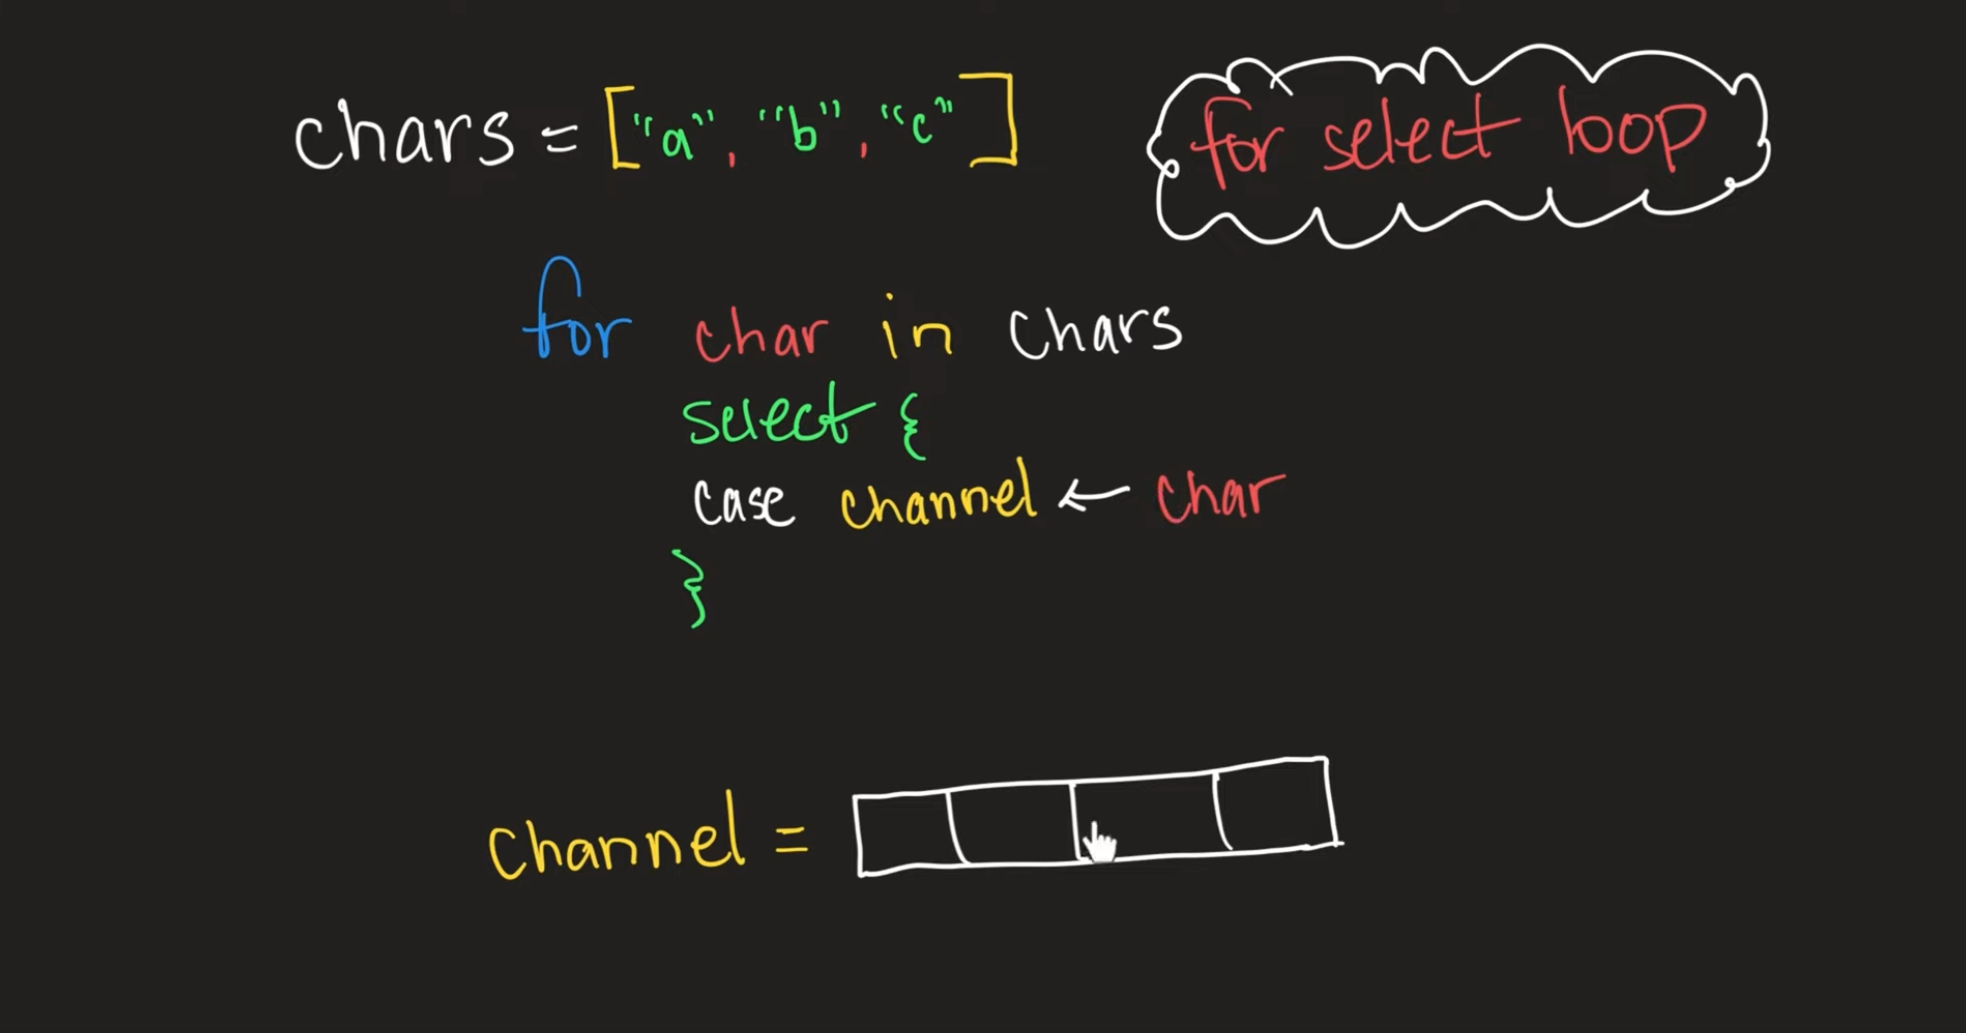 chars = ["a", "b", "c"]
for select loop
for char in chars
select {
case channel ← char
}
channel =